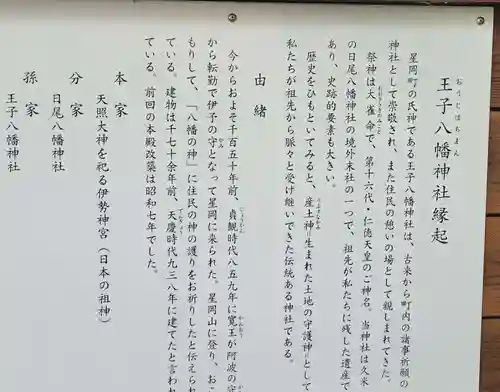 王子八幡神社縁起
おうじはちまん
星岡町の氏神である王子八幡神社は、古来から町内の諸事祈願の
神社として崇敬され、また住民の憩いの場として親しまれてきた。
祭神は大雀命で、第十六代・仁徳天皇のご神名。当神社は久米
おおささぎのみこと
の日尾八幡神社の境外末社の一つで、祖先が私たちに残した遺産で
あり、史跡的要素も大きい。
歴史をひもといてみると、産土神=生まれた土地の守護神=として
うぶすながみ
私たちが祖先から脈々と受け継いできた伝統ある神社である。
由緒
今からおよそ千百五十年前、貞観時代八五九年に寛王が阿波の守
じょうかん
かんおう
かみ
から転勤で伊予の守となって星岡に来られた。星岡山に登り、お
かみ
もりして、「八幡の神」に住民の神の護りをお祈りしたと伝えられ
ている。建物は千七十余年前、天慶時代九三八年に建てたと言われ
ている。前回の本殿改築は昭和七年でした。
本家
天照大神を祀る伊勢神宮(日本の祖神)
分家
日尾八幡神社
孫家
王子八幡神社